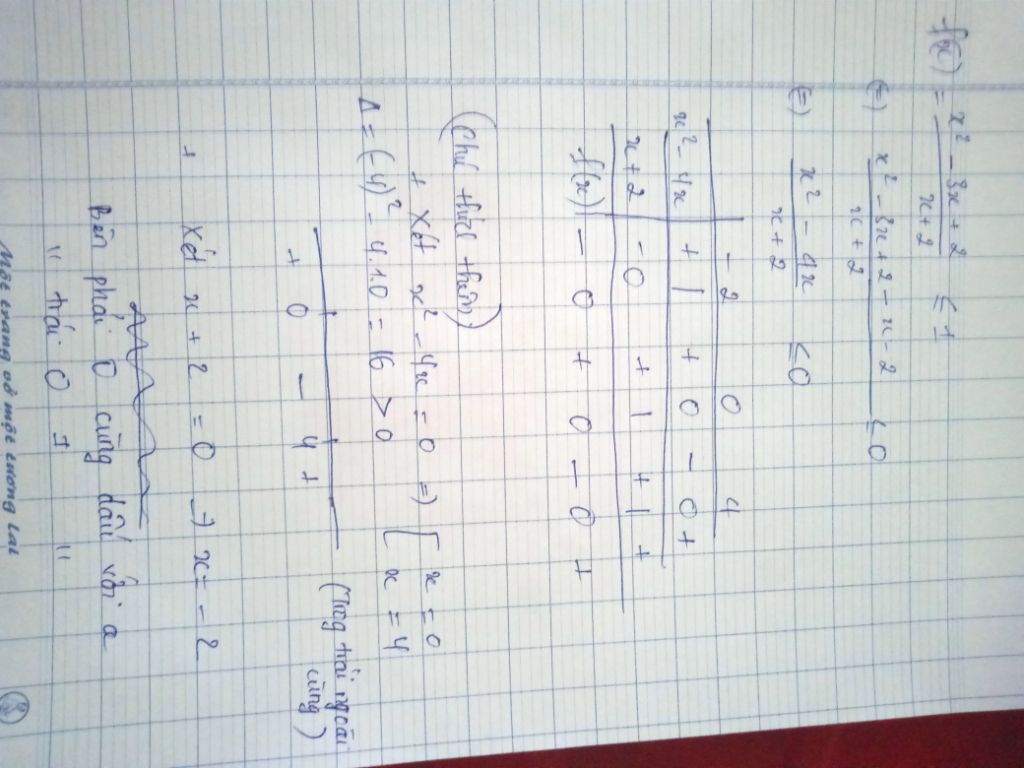 f(x) = x² - 3x + 2 / x + 2 ≤ 1
(=) x² - 3x + 2 - x - 2 / x + 2 ≤ 0
(=) x² - 4x / x + 2 ≤ 0
-2 0 4
x² - 4x + | + 0 - 0 +
x + 2 - 0 + | + | +
f(x) - 0 + 0 - 0 +
(Chú thích thêm)
+ Xét x² - 4x = 0 => [ x = 0
x = 4
Δ = (-4)² - 4.1.0 = 16 > 0
+ 0 - 4 +
(Trog trái ngoài cùng)
+ Xét x + 2 = 0 -> x = - 2
Bên phải 0 cùng dấu với a
" trái 0 "
Một trang vở một tương lai